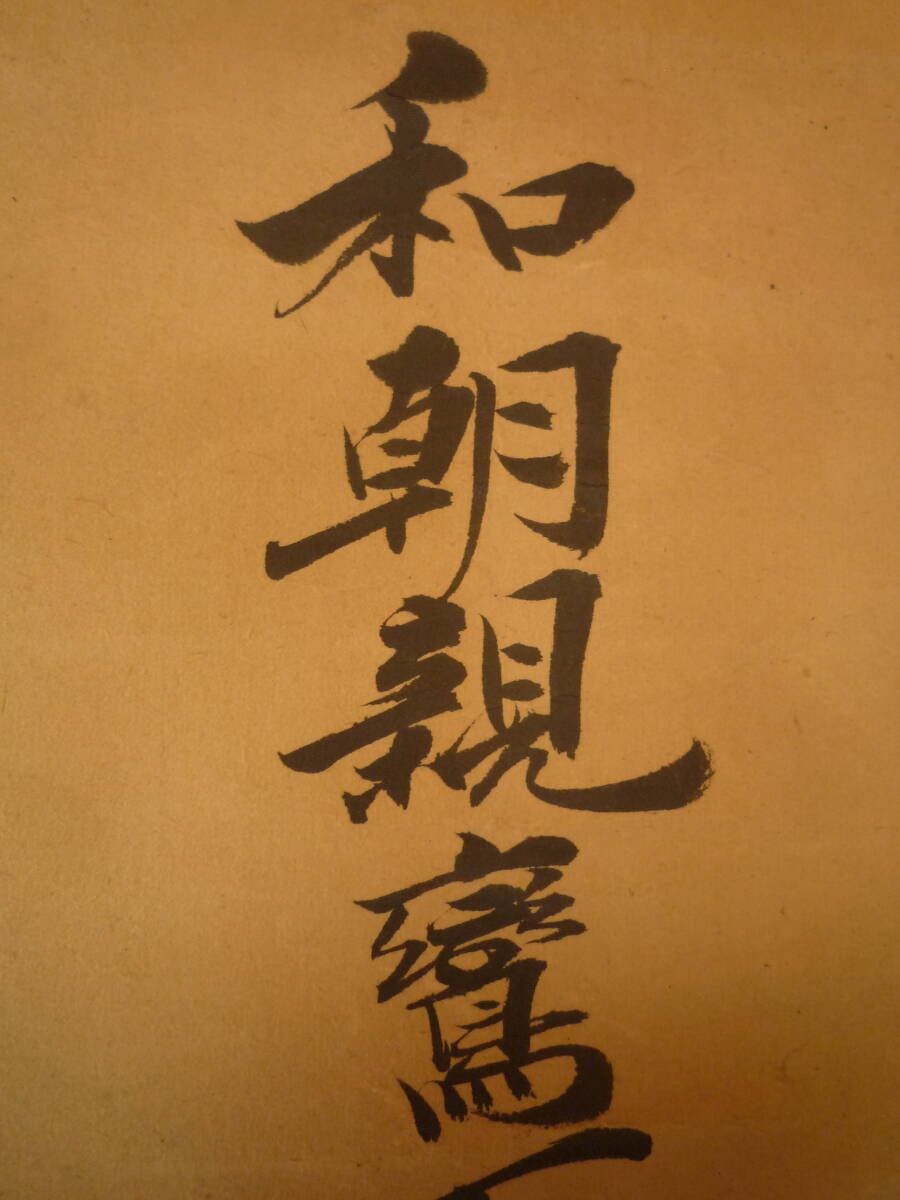 和朝親鸞